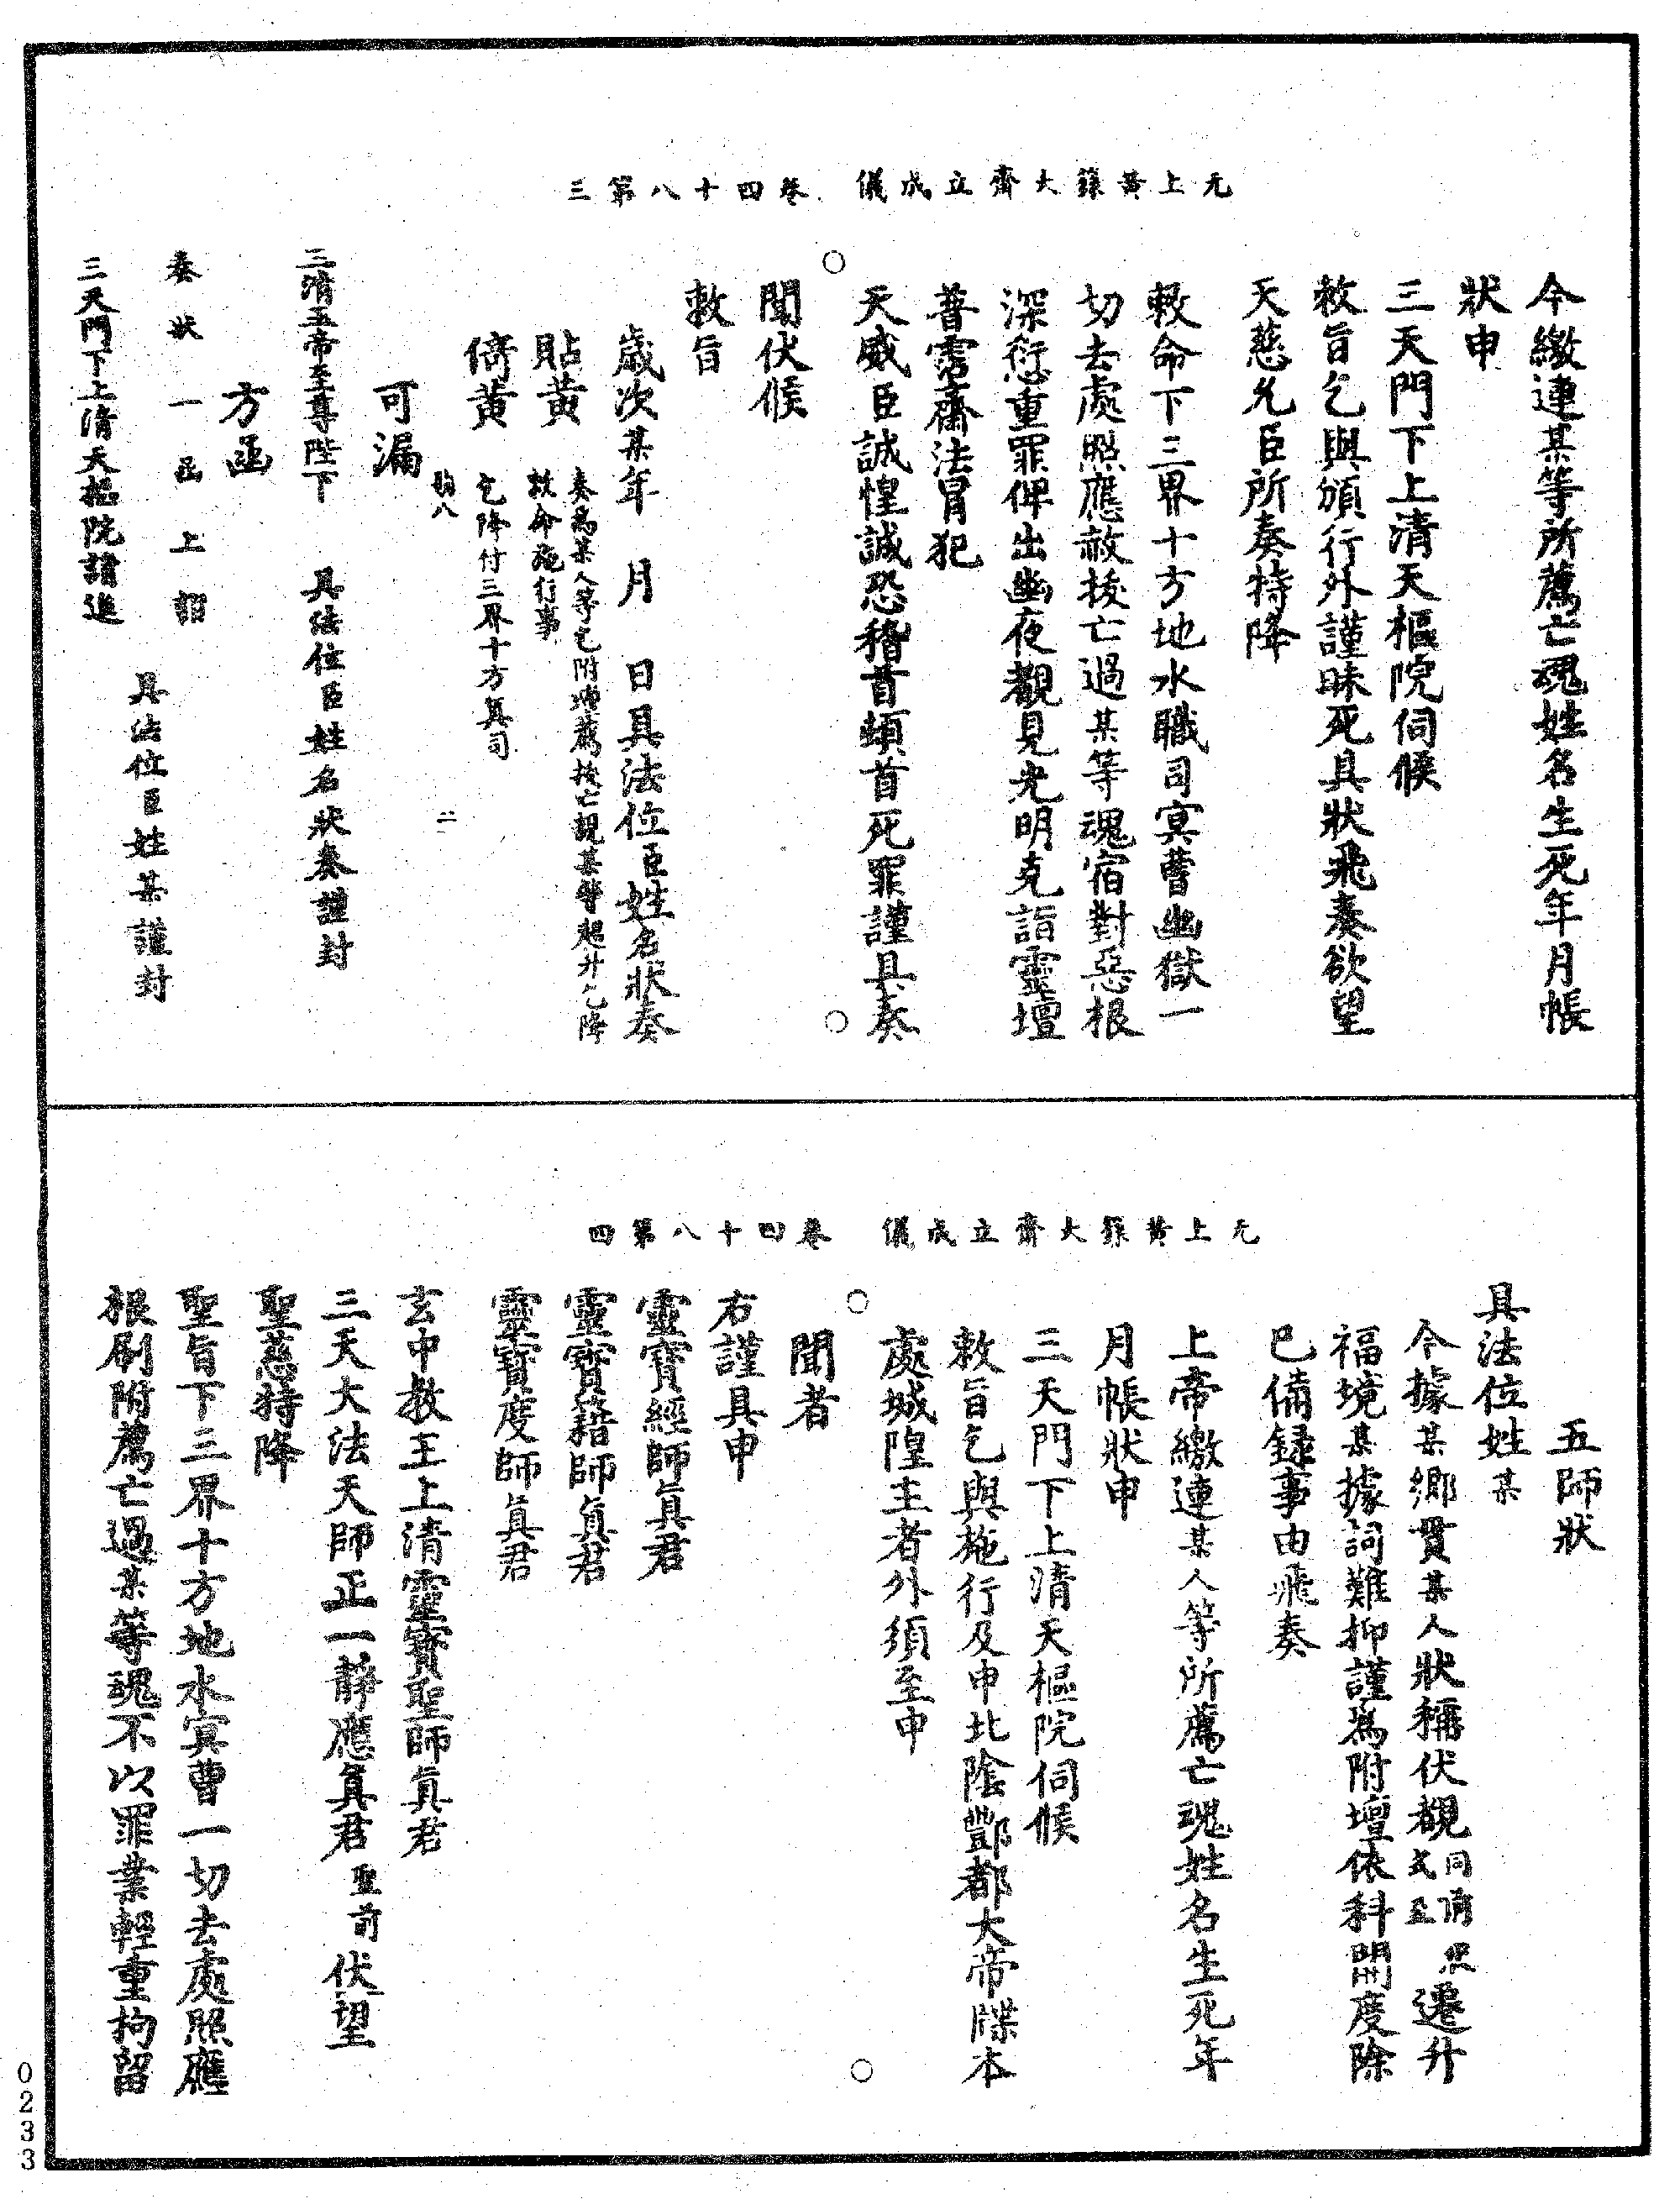 无上黃籙大齋立成儀　卷四十八第三
今繳連某等所薦亡魂姓名生死年月帳
狀申
三天門下上清天樞院伺候
敕旨乞與頒行外謹昧死具狀飛奏欲望
天慈允臣所奏特降
敕命下三界十方地水職司冥曹幽獄一
切去處照應赦拔亡過某等魂宿對惡根
深愆重罪俾出幽夜覩見光明克詣靈壇
普霑齋法冒犯
天威臣誠惶誠恐稽首頓首死罪謹具奏
聞伏候
敕旨
歲次某年　月　日具法位臣姓名狀奏
貼黃　奏為某人等乞附壇薦拔亡魂某等超升乞降
敕命施行事
偫黃　乞降付三界十方真司
八　二
可漏
三清五帝至尊陛下　具法位臣姓名狀奏謹封
方函
奏狀一函上詣　具法位臣姓某謹封
三天門下上清天樞院請進
无上黃籙大齋立成儀　卷四十八第四
五師狀
具法位姓某
今據某鄉貫某人狀稱伏覩同前式至遷升
福境某據詞難抑謹為附壇依科開度除
已備錄事由飛奏
上帝繳連某人等所薦亡魂姓名生死年
月帳狀申
三天門下上清天樞院伺候
敕旨乞與施行及申北陰酆都大帝牒本
處城隍主者外須至申
聞者
右謹具申
靈寶經師真君
靈寶籍師真君
靈寶度師真君
玄中教主上清靈寶聖師真君
三天大法天師正一靜應真君聖前伏望
聖慈特降
聖旨下三界十方地水冥曹一切去處照應
根刷附薦亡過某等魂不以罪業輕重拘留
0233